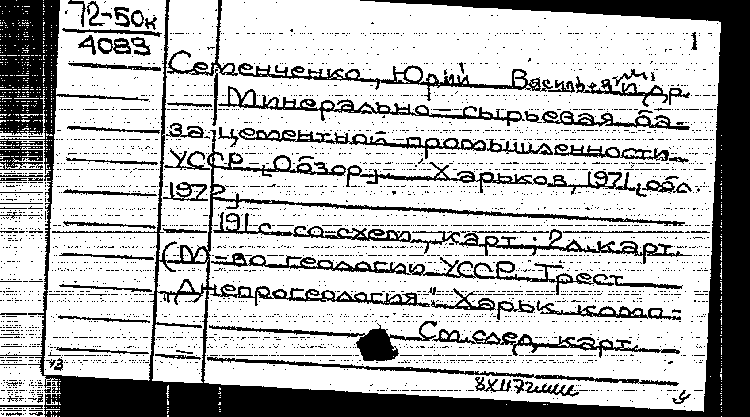 72-50к
4083
1
Семенченко, Юрий Васильевич и др.
Минерально-сырьевая ба-
за цементной промышленности
УССР [Обзор]. Харьков, 1971, [обл.
1972]
191 с. со схем., карт.; 2 л. карт.
(М-во геологии УССР. Трест
„Днепрогеология". Харьк. комп-
См. след. карт.